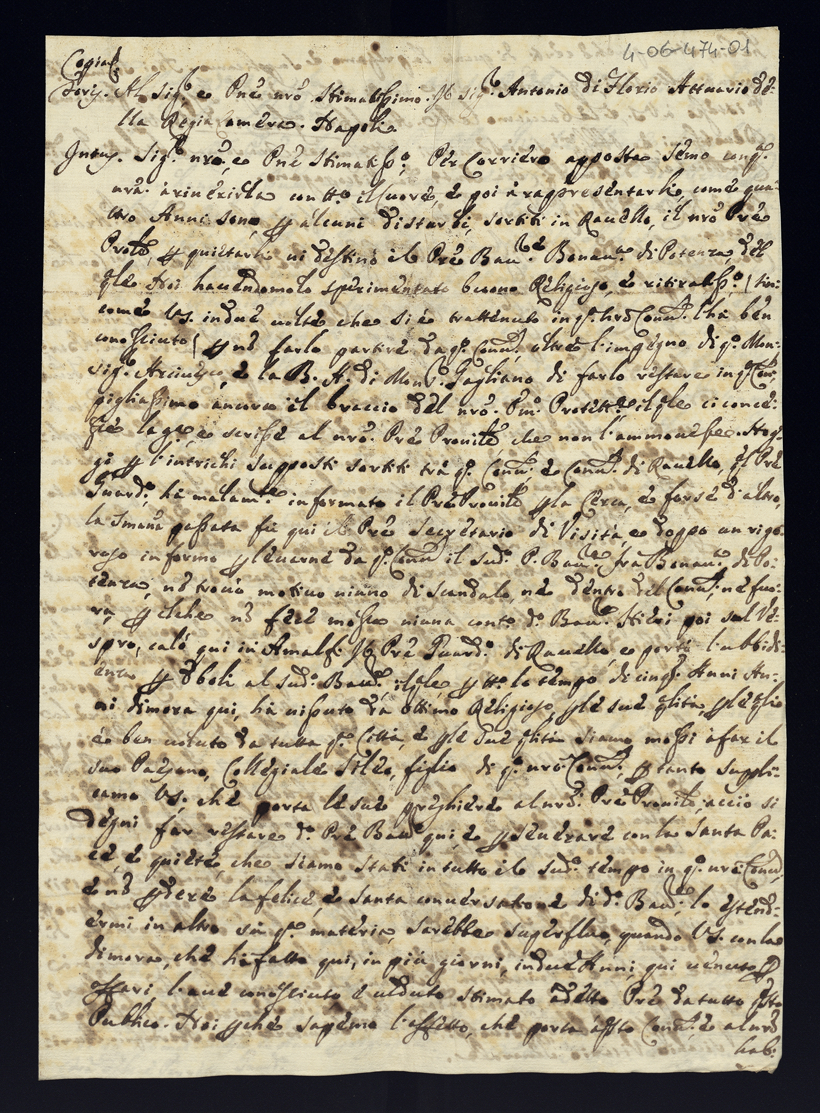 4-06-474-01
Copia
Foris. Al Sig.r e Pne nro Stimatissimo Il Sig.r Antonio di Florio Attuario de-
lla Regia Camera. Napoli
Intus. Sig.r nro, e Pne Stimatiss.o, Per Corriero apposta semo
nra à riverirla con tt.o il cuore, e poi à rappresentarli, come qua-
ttro Anni sono, p alcuni disturbi, sortiti in Ravello, il nro Pre
Prole, p quietarli vi destinò il Pre Bac.re Bonav.a di Potenza, del
qle Noi havendomolo sperimentato buono Religioso, e ritiratiss.o (sin-
come VS. in due volte che si è trattenuto in q.o nro Conv.to l'hà ben
conosciuto) p nò farlo partire da q.o Conv.to oltre l'impegno di q.o Mon-
sig.r Arciv.o, e la B. A. di Mon.r Gagliano di farlo restare in q.o Conv.to,
pigliassimo ancora il braccio del nro Em. Protett.re, il qle ci conce-
l'intrichi supposti sortiti trà q.o Conv.to e Conv.to di Ravello, il Pre
Guard.o hà malam.te informato il Pre Provin.le p la Cerca, e forse d'altro,
la Smana passata fù qui il Pre Secretario di Visita, e doppo un rigo-
roso informo p levarne da q.o Conv.to il sud.o P. Bac.re Fra Bonav.a di Po-
tenza, nò trovò motivo niuno di scandalo, nè dentro del Conv.to, nè fuo-
ra, p ilche nò fece mossa niuna conto d.o Bac.re. Hieri poi sul Ve-
spro, calò qui in Amalfi il Pre Guard.o di Ravello, e portò l'ubbidi-
enza p Eboli al sud.o Bac.re, il qle p tt.o lo tempo di cinq. Anni An-
ni dimora qui, hà vissuto da ottimo Religioso, p le sue qlità, p le qli
è ben voluto da tutta q.a Città, e p le sue qlità siamo mossi à far il
suo Paesano, Collegiale Sileo, figlio di q.o nro Conv.to, p tanto suppli-
camo VS. che porta le sue preghiere al nro Pre Provin.le, acciò si
degni far restare d.o Pre Bac.re qui, e pseverare con la Santa Pa-
ce, e quiete, che siamo stati in tutto il sud.o tempo in q.o nro Conv.to,
e nò pdere la felice, e santa conversatione di d.o Bac.re; lo estend-
ermi in altro sù q.a materia, sarebbe superfluo, quando VS. con la
dimora, che hà fatto qui, in più giorni, in due Anni, qui venuto p
affari, l'ave conosciuto e veduto stimato detto Pre da tutto qsto
Publico. Noi p che sapemo l'affetto, che porta à qsto Conv.to, e al nro
hab: